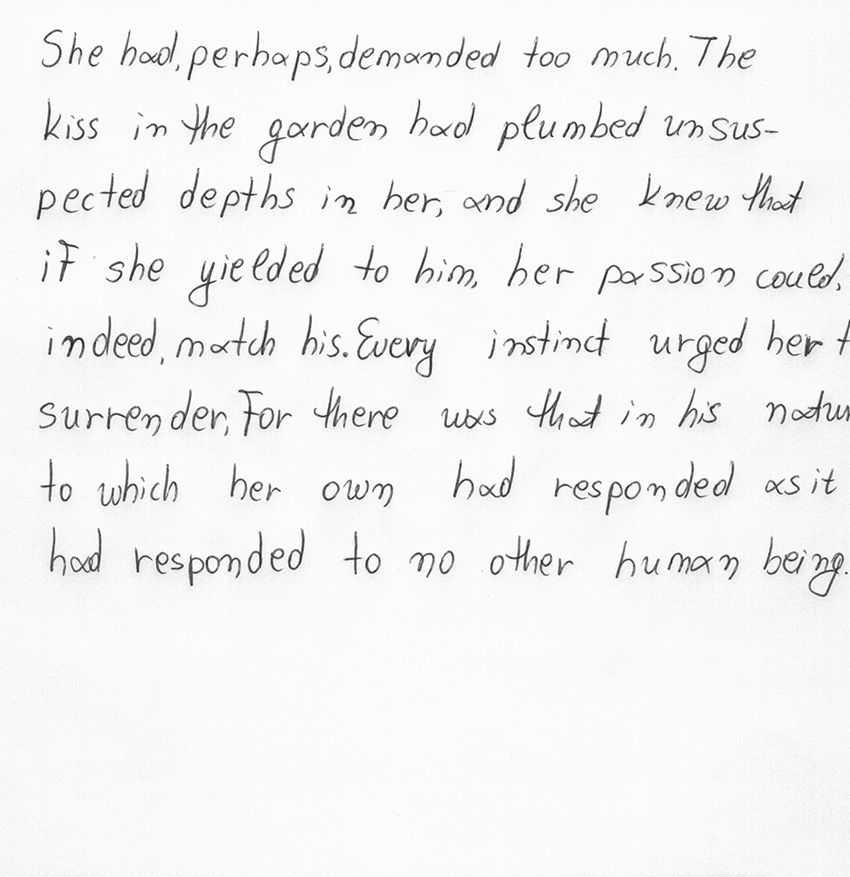 She had, perhaps, demanded too much. The
kiss in the garden had plumbed unsus-
pected depths in her, and she knew that
if she yielded to him, her passion could,
indeed, match his. Every instinct urged her t
surrender, For there was that in his natur
to which her own had responded as it
had responded to no other human being.